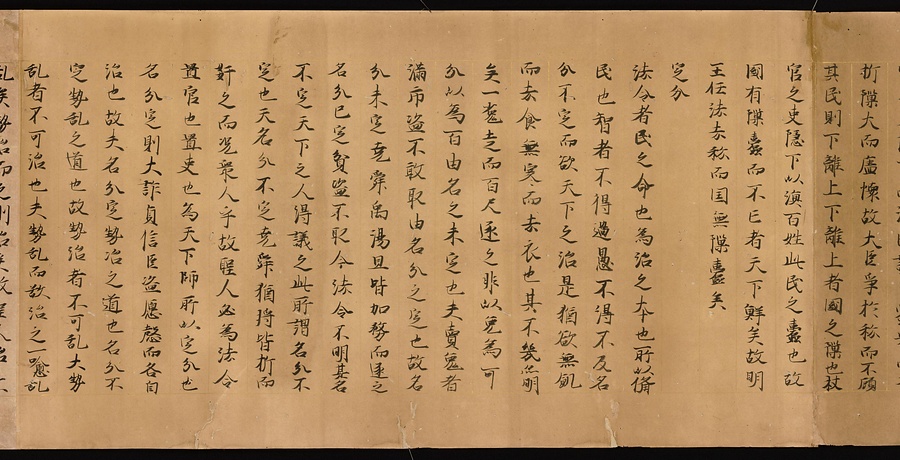 折隟大而廬懷故大臣爭於私而不顧
其民則下離上下離上者國之隟也秩
官之吏隱下以漁百姓此民之蠹也故
國有隟蠹而不亡者天下鮮矣故明
王任法去私而国無隟蠹矣
定分
法令者民之命也為治之本也所以備
民也智者不得過愚不得不及名
分不定而欲天下之治是猶欲無飢
而去食無寒而去衣也其不幾亦明
矣一菟走而百人逐之非以菟為可
分以為百由名之未定也夫賣菟者
滿市盜不敢取由名分之定也故名
分未定堯舜禹湯且皆加務而逐之
名分已定貧盜不取今法令不明其名
不定天下之人得議之此所謂名分不
定也夫名分不定堯舜猶将皆折而
姧之而況衆人乎故聖人必為法令
置官也置吏也為天下師所以定分也
名分定則大詐貞信臣盜愿愨而各自
治也故夫名分定勢治之道也名分不
定勢乱之道也故勢治者不可乱大勢
乱者不可治也夫勢乱而欲治之愈乱